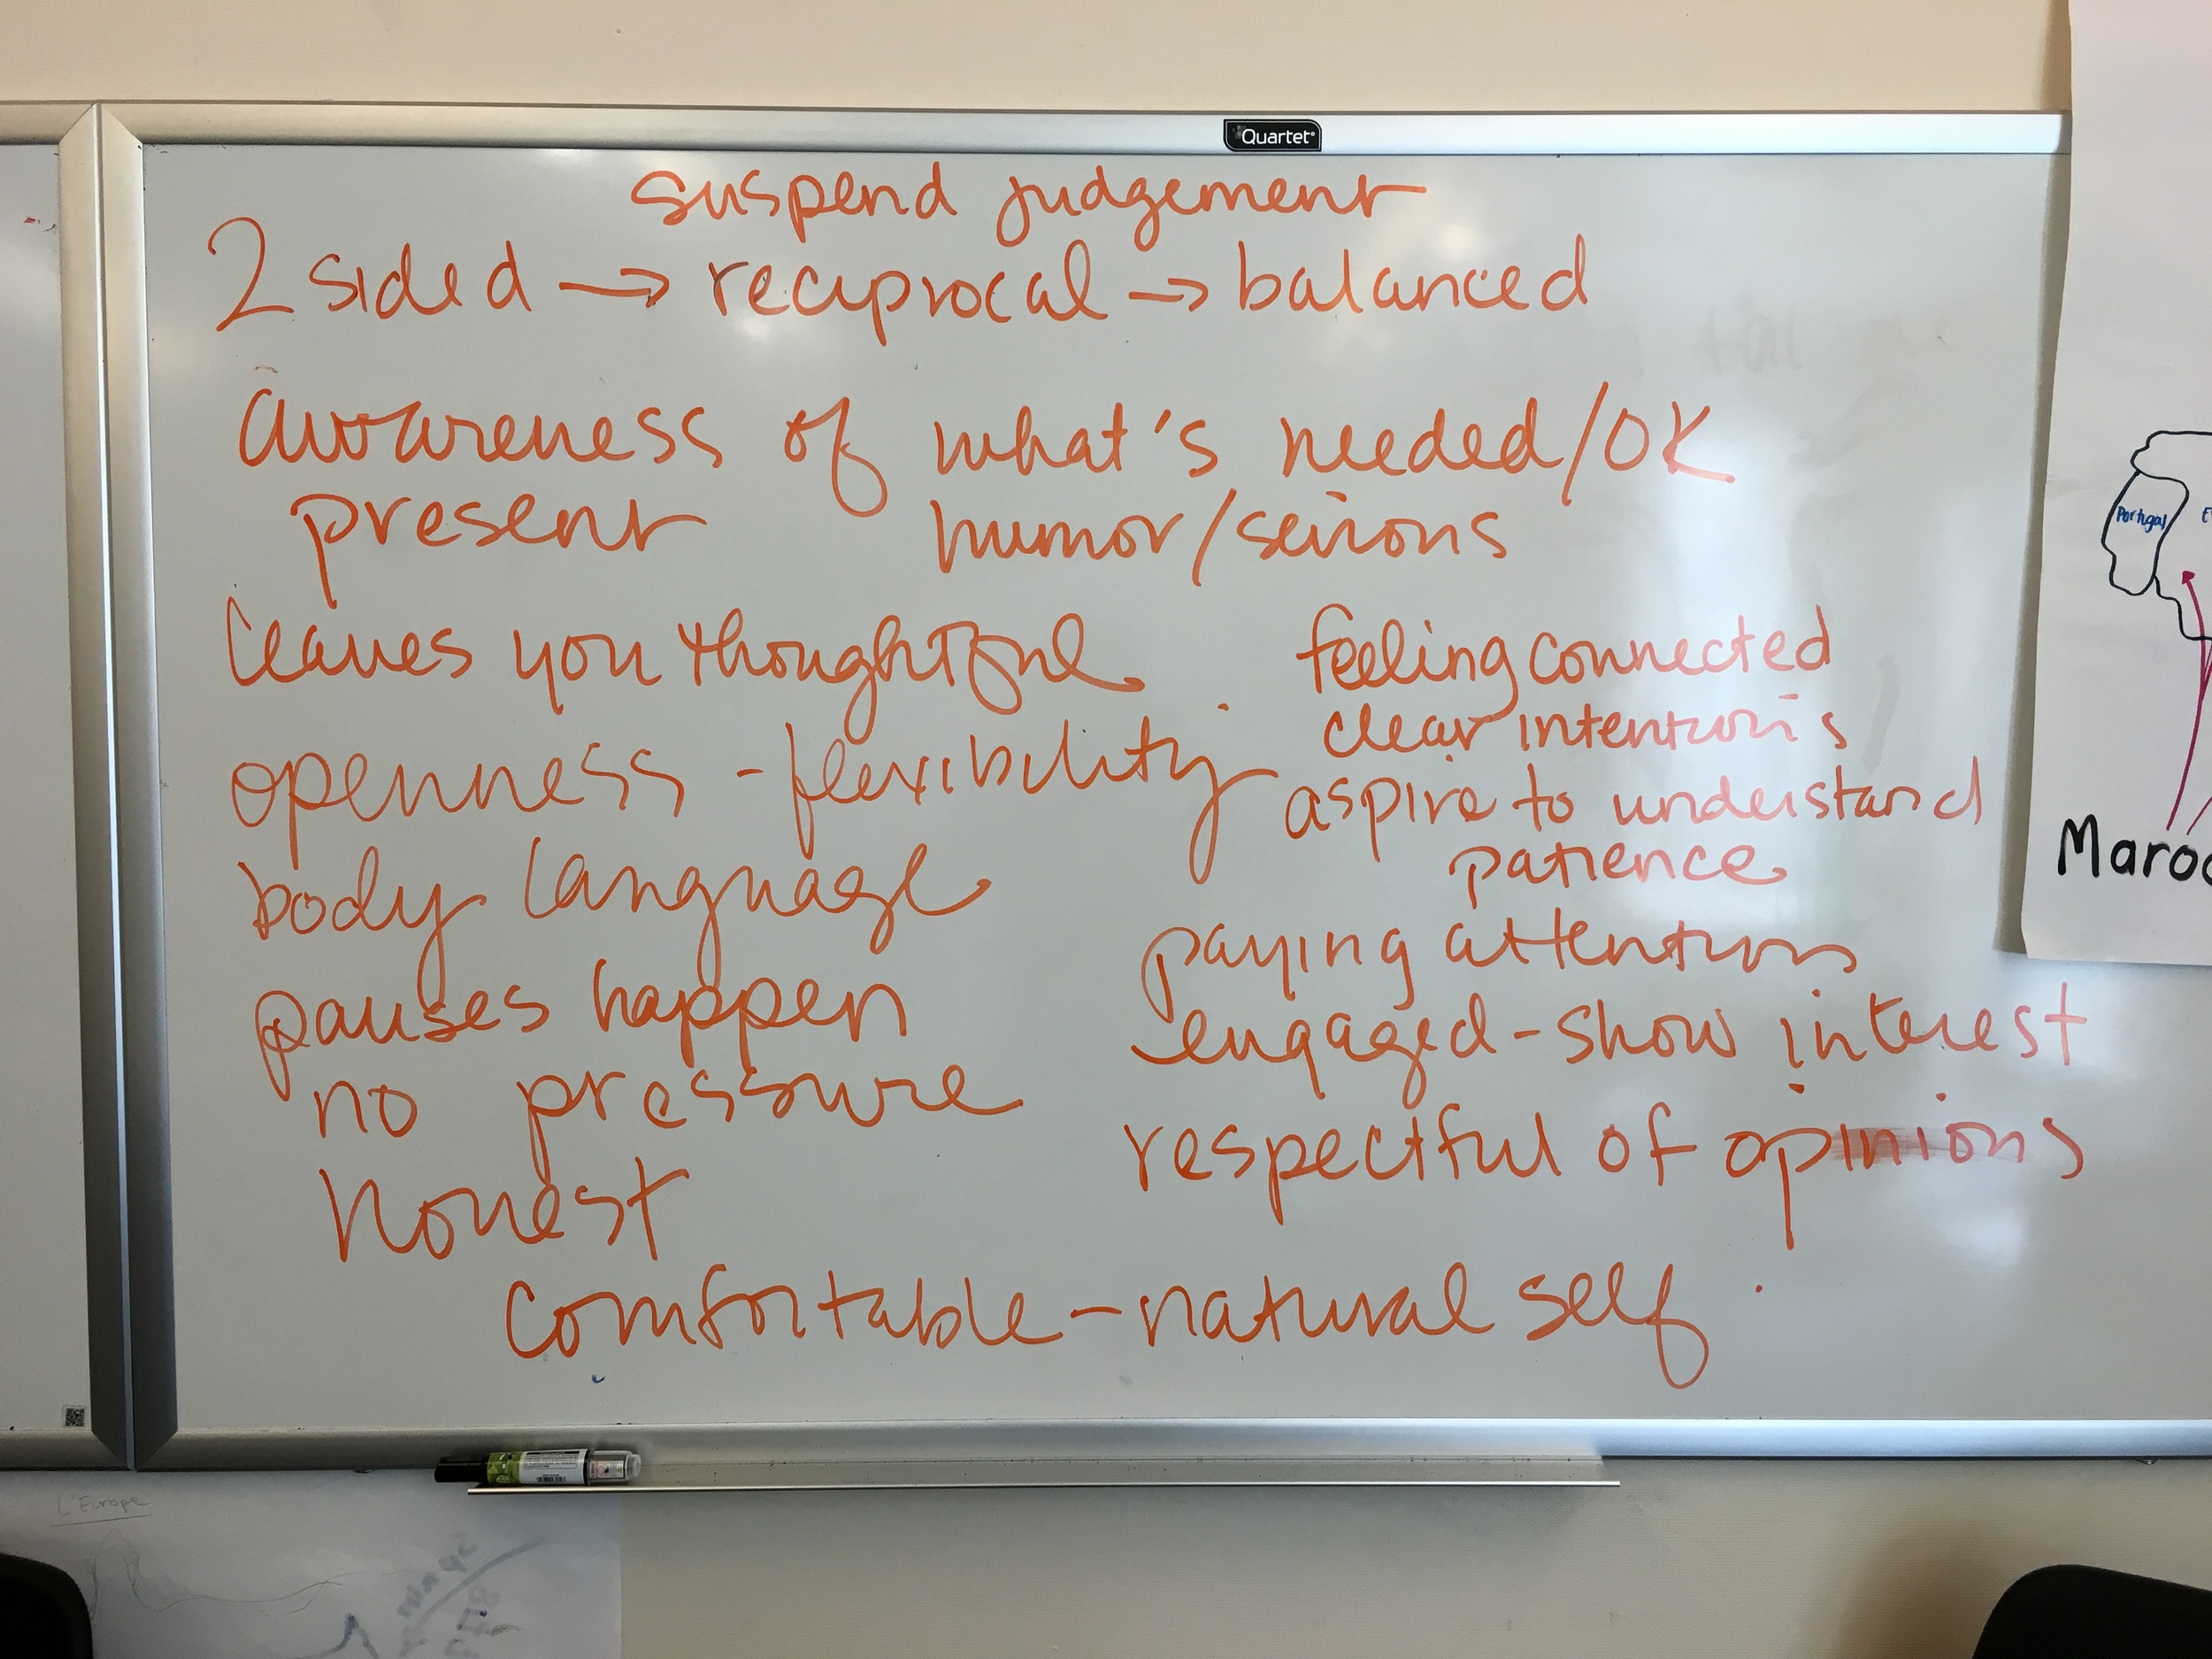 Quartet
suspend judgement
2 sided → reciprocal → balanced
awareness of what's needed/OK
present humor/serious
leaves you thoughtful
feeling connected
clear intentions
openness - flexibility
aspire to understand
patience
body language
paying attention
pauses happen
engaged - show interest
no pressure
respectful of opinions
Honest
comfortable - natural self
Portugal
Maroc
L'Europe